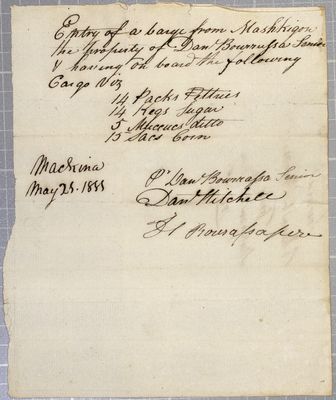 Entry of a barge from Mashkigon
the property of Danl Bourrassa Senior
& having on board the following
Cargo Viz
14 Packs Peltries
14 Kegs Sugar
5 Mucucs ditto
15 Sacs Corn
Mackina
May 25. 18
P. Danl Bourrassa Senior
Danl Mitchell
Bourassa pere